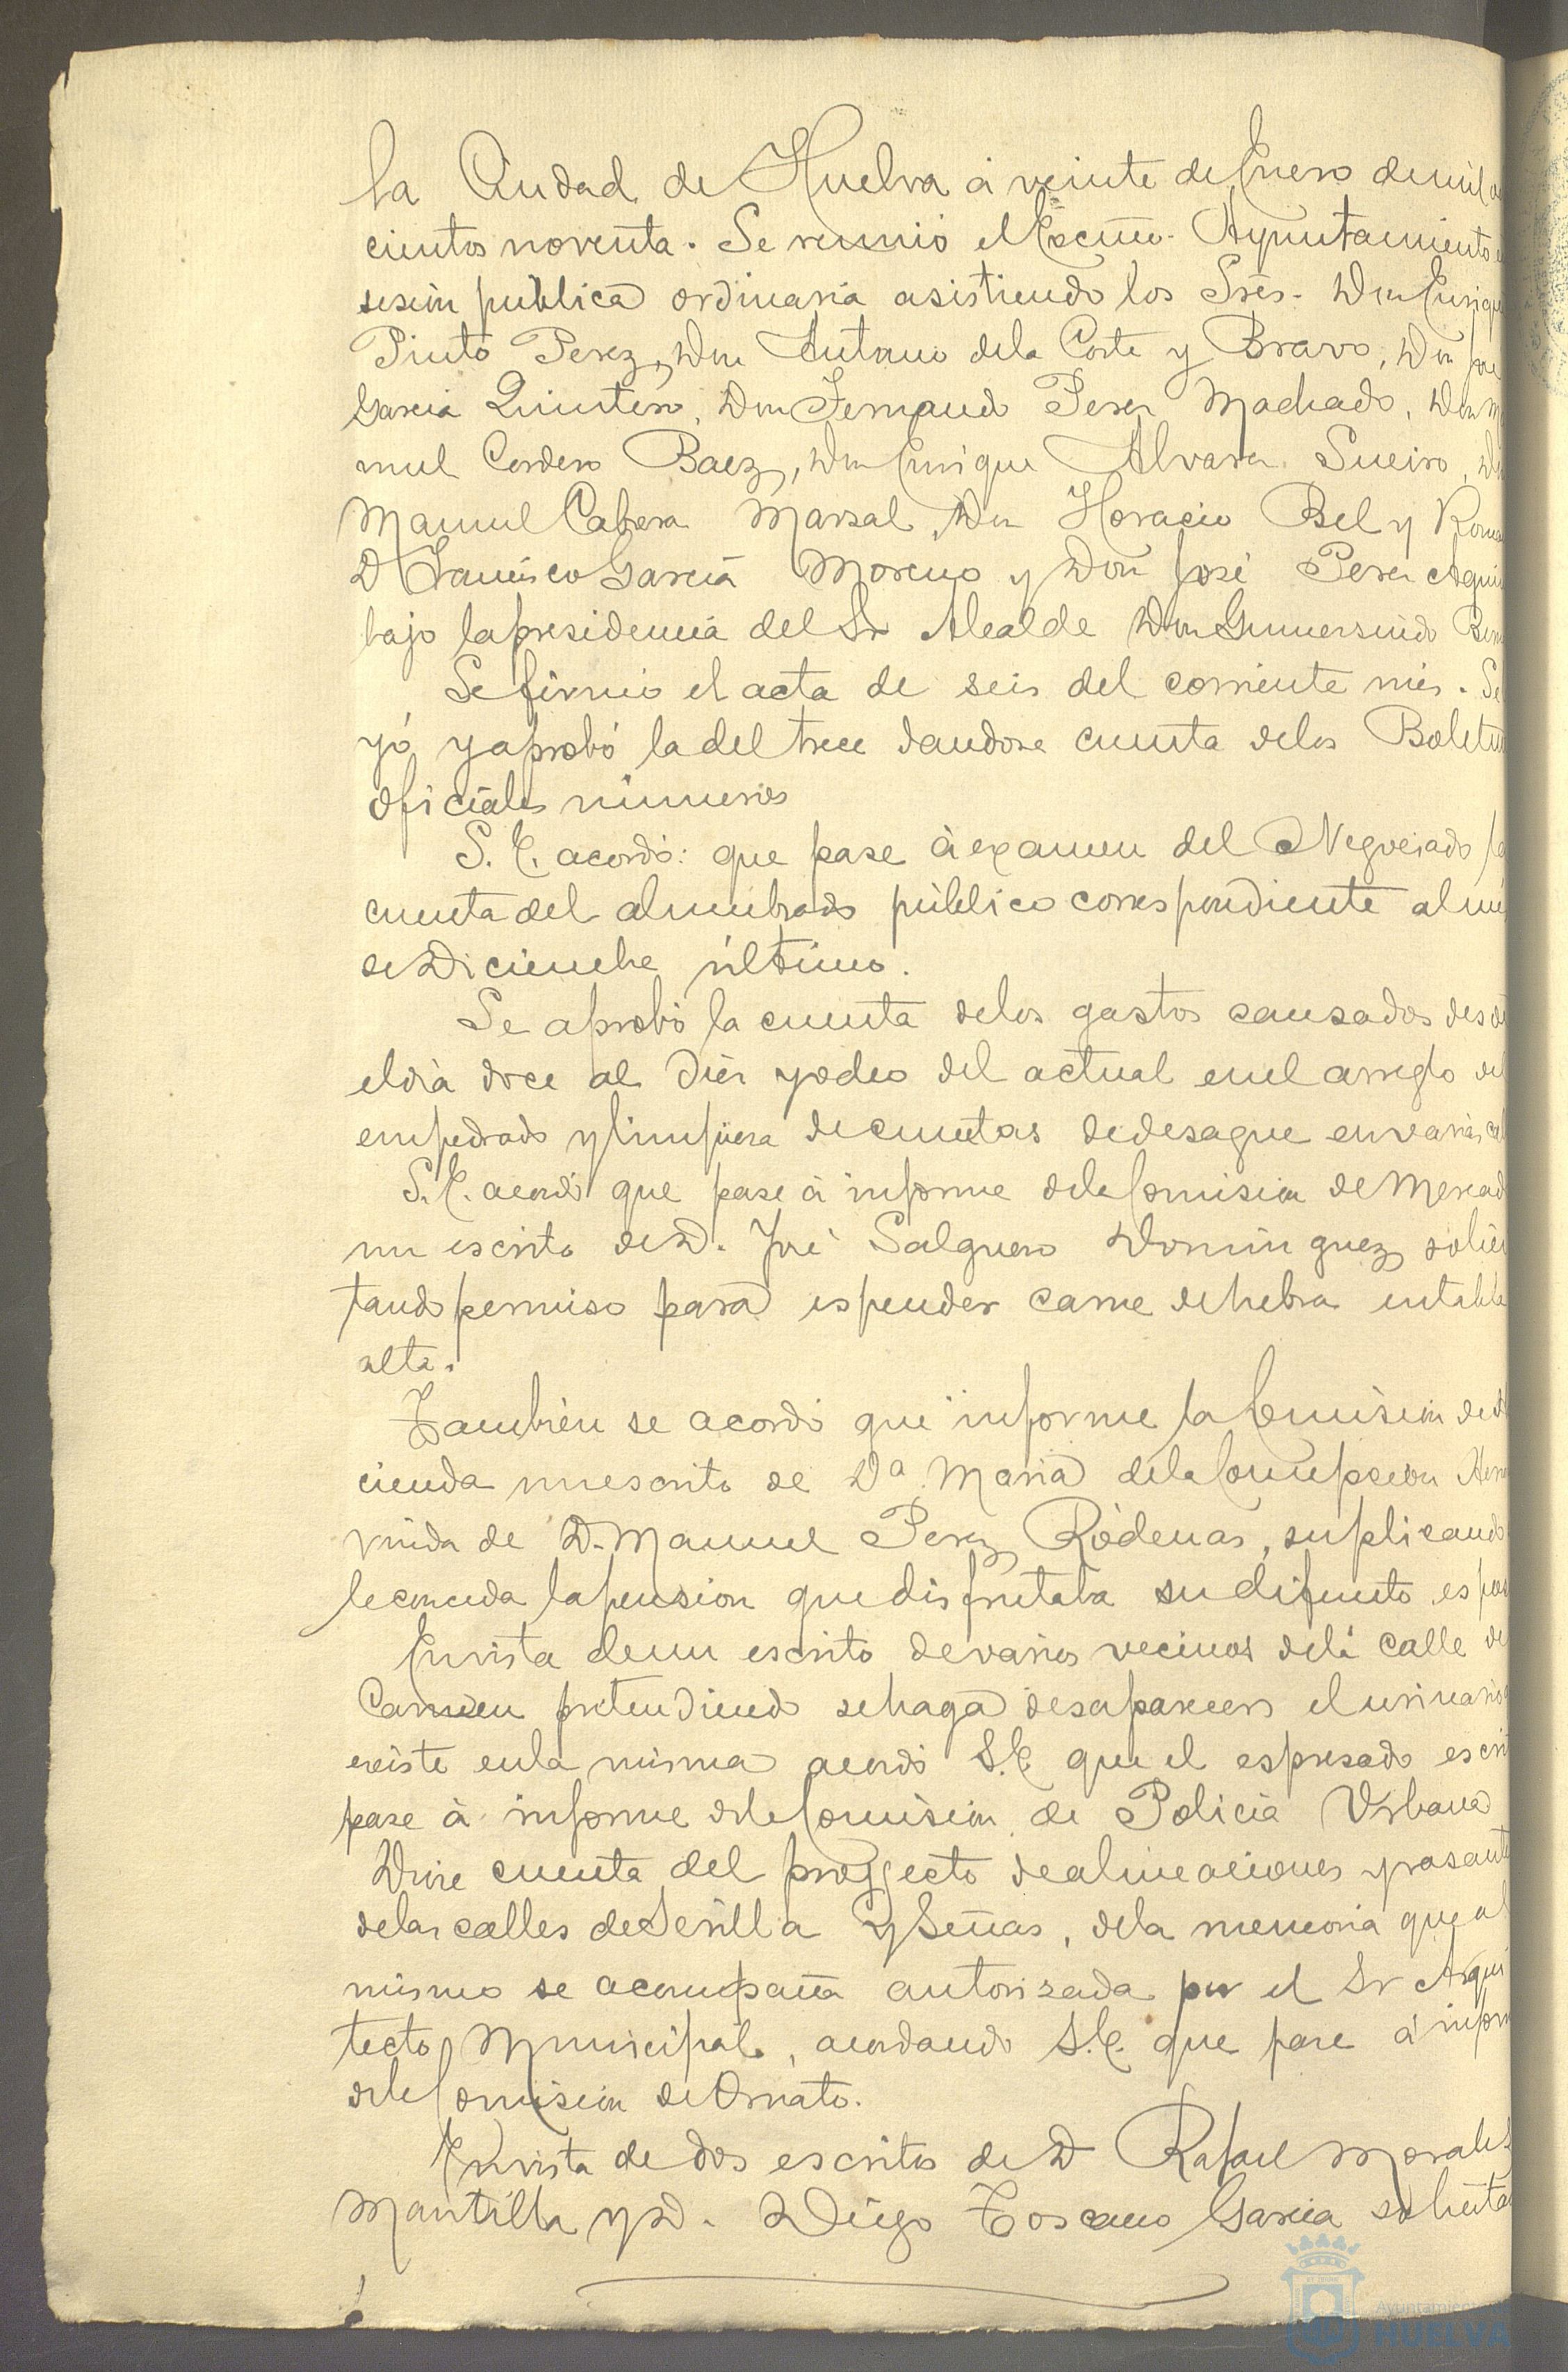 la Ciudad de Huelva á veinte de Enero de mil
cientos noventa. Se reunió el Excmo. Ayuntamiento
sesión pública ordinaria asistiendo los Sres. Don Enrique
Pinto Perez, Don Antonio dela Corte y Bravo, Don José
Garcia Quintero, Don Fernando Perez Machado, Don Ma
nuel Cordero Baez, Don Enrique Alvarez Sueiro, Don
Manuel Cabeza Marsal, Don Horacio Bel y Roma
D Francisco Garcia Moreno y Don José Perez
bajo la presidencia del Sr Alcalde Don Gumersindo
Se firmó el acta de seis del corriente mes. Se
yó y aprobó la del trece dandose cuenta delos Boletin
oficiales números
S. E. acordó: que pase á examen del Negociado la
cuenta del alumbrado público correspondiente al
de Diciembre último.
Se aprobó la cuenta delos gastos causados desde
el dia doce al diez y ocho del actual en el arreglo del
empedrado y limpieza de cunetas de desague en varias
S. E. acordó que pase á informe dela Comision de Mercad
un escrito de D. José Salguero Dominguez solici
tando permiso para espender carne de hebra en tabla
alta.
Tambien se acordó que informe la Comisión de
cienda un escrito de Dª Maria dela Concepcion
viuda de D. Manuel Perez Ródenas, suplicando
le conceda la pension que disfrutaba su difunto espos
En vista de un escrito de varios vecinos dela calle del
Carmen pretendiendo se haga desaparecer el urinario
existe en la misma acordó S. E. que el espresado escri
pase á informe dela Comisión de Policia Urbana
Dióse cuenta del proyecto de alineaciones y rasant
delas calles de Sevilla y Señas, dela memoria que al
mismo se acompaña autorizada por el Sr Arqui
tecto Municipal, acordando S. E. que pase á inform
dela Comisión de Ornato.
En vista de dos escritos de D Rafael Morales
Mantilla y D. Diego Toscano Garcia solicita
Ayuntamiento
HUELVA